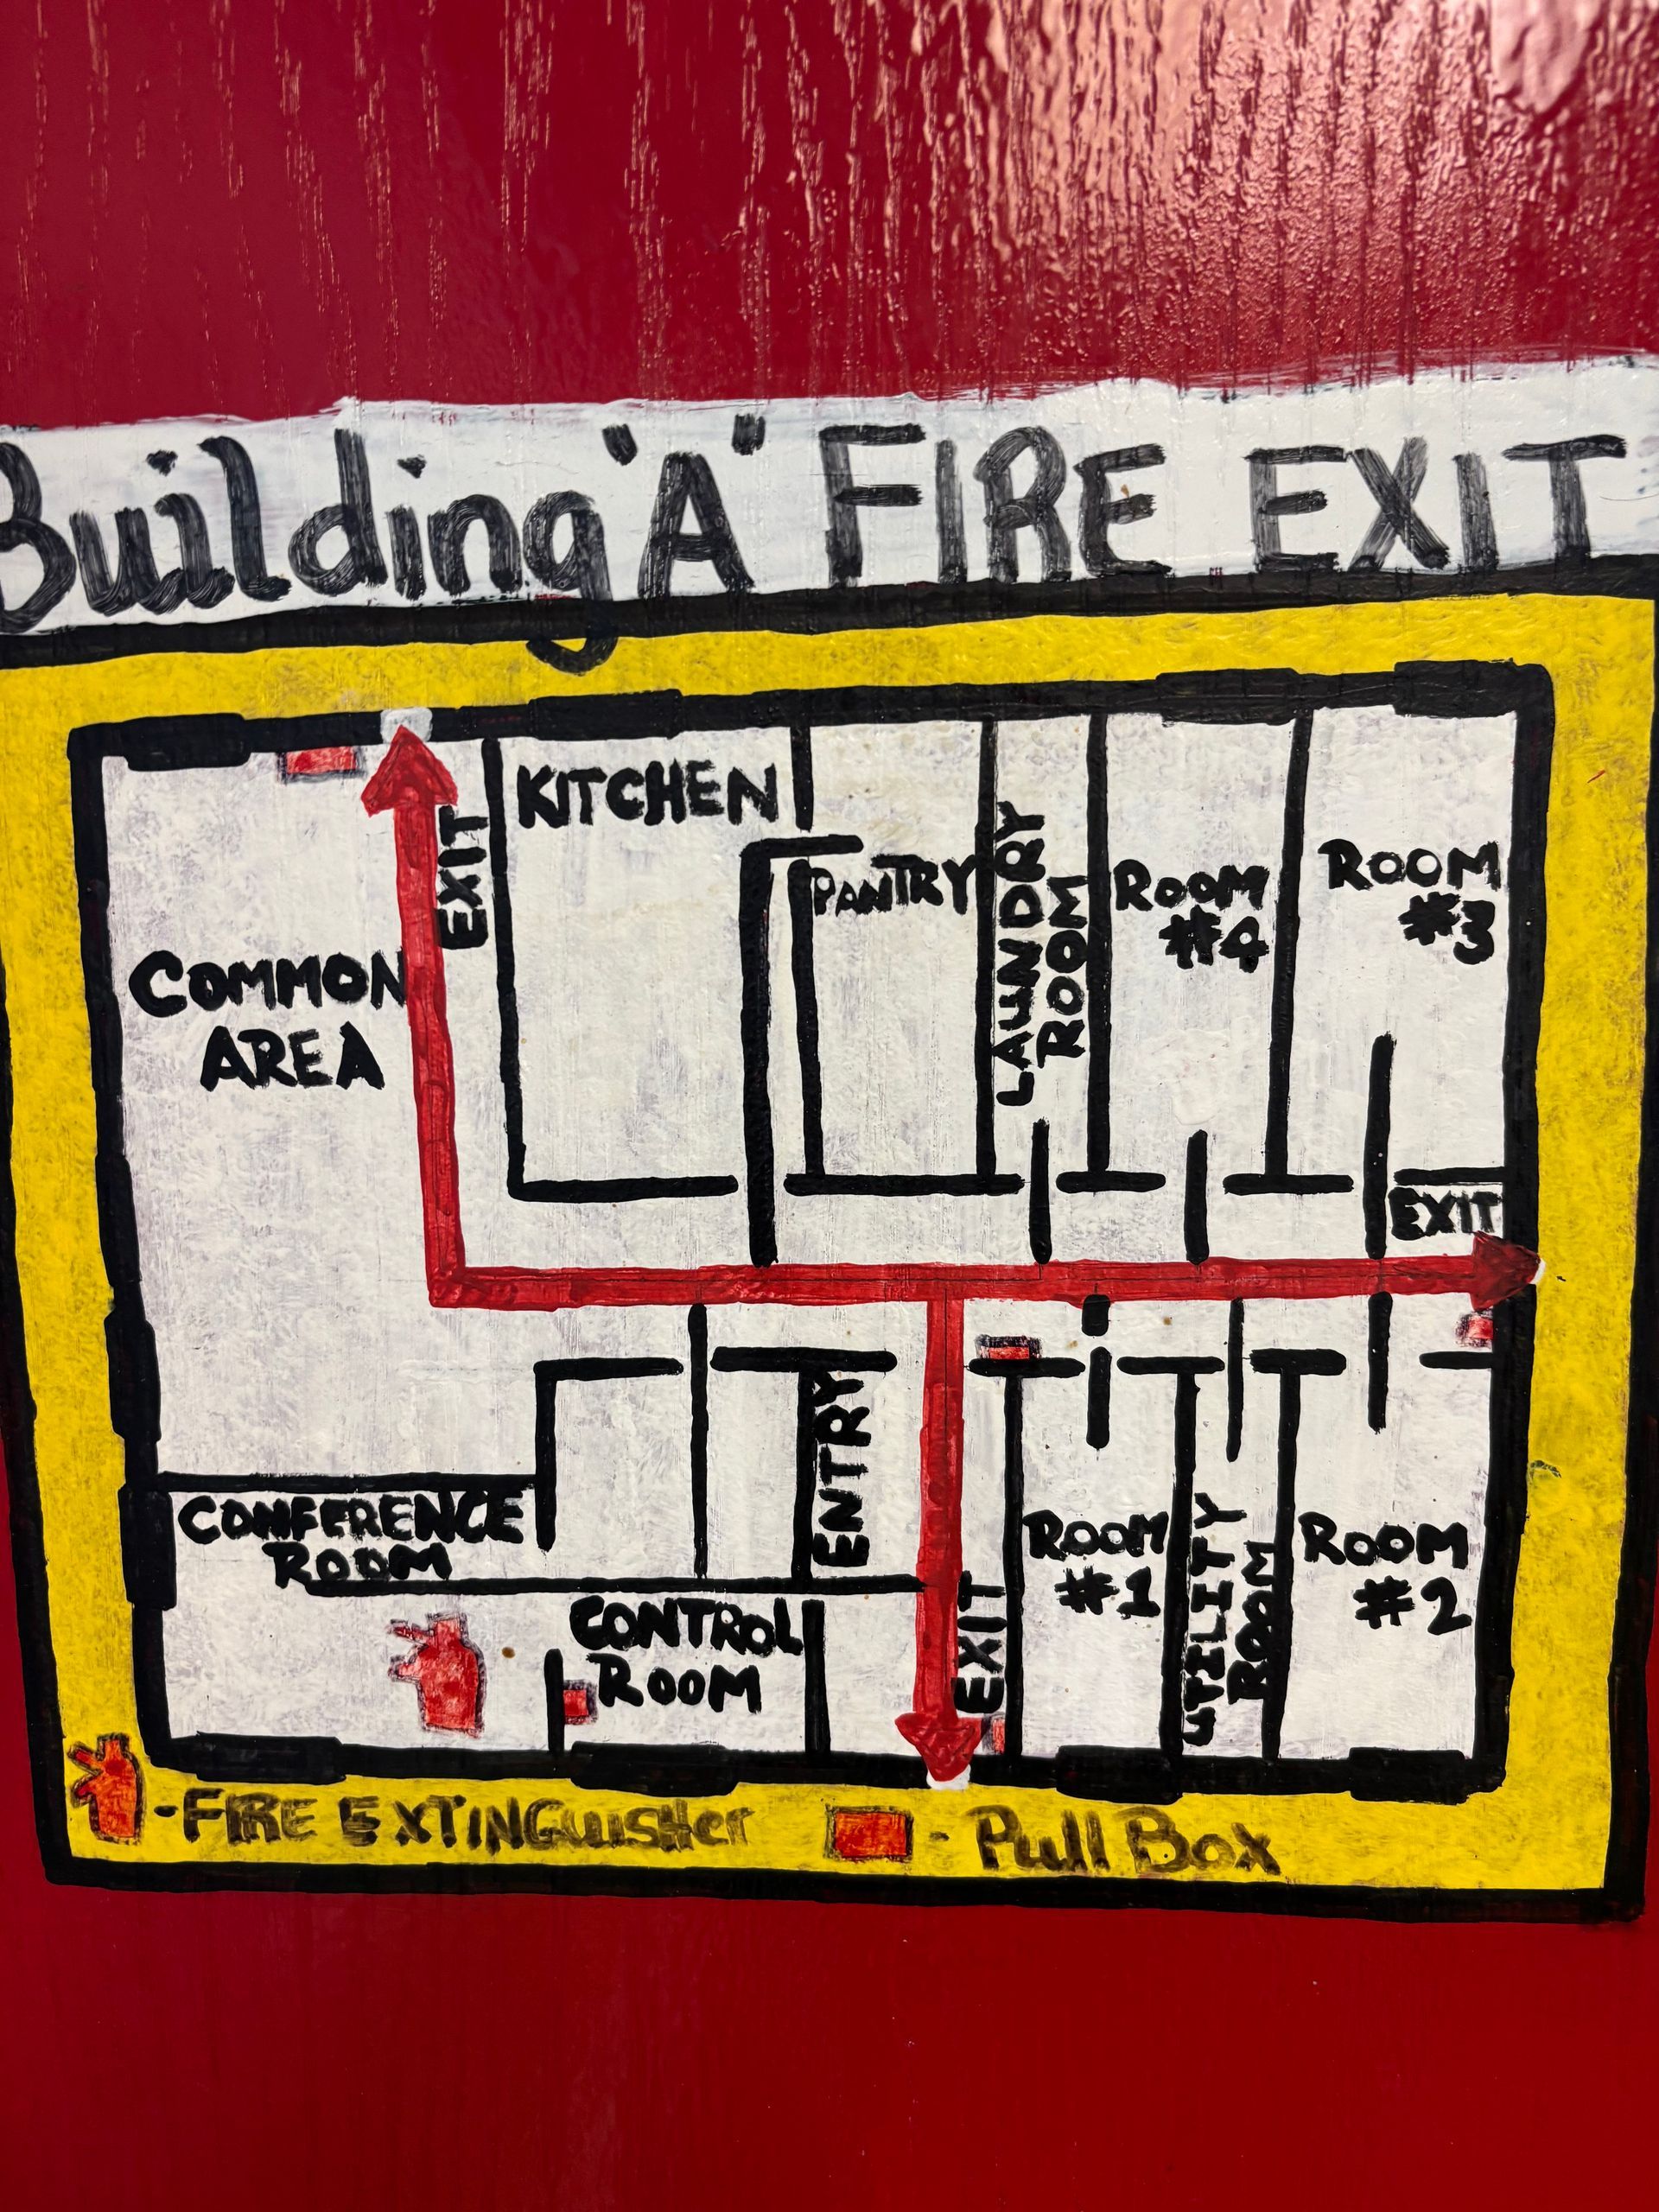 Building "A" FIRE EXIT
KITCHEN
EXIT
PANTRY
LAUNDRY
ROOM
ROOM
#4
ROOM
#3
COMMON
AREA
EXIT
ENTRY
CONFERENCE
ROOM
CONTROL
ROOM
EXIT
ROOM
#1
UTILITY
ROOM
ROOM
#2
-FIRE EXTINGuisHer
- Pull Box